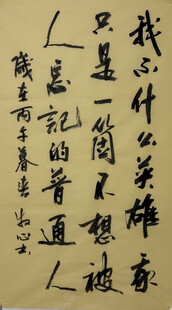 我不什么英雄我
只是一个不想被
人忘记的普通人
岁在丙午暮春